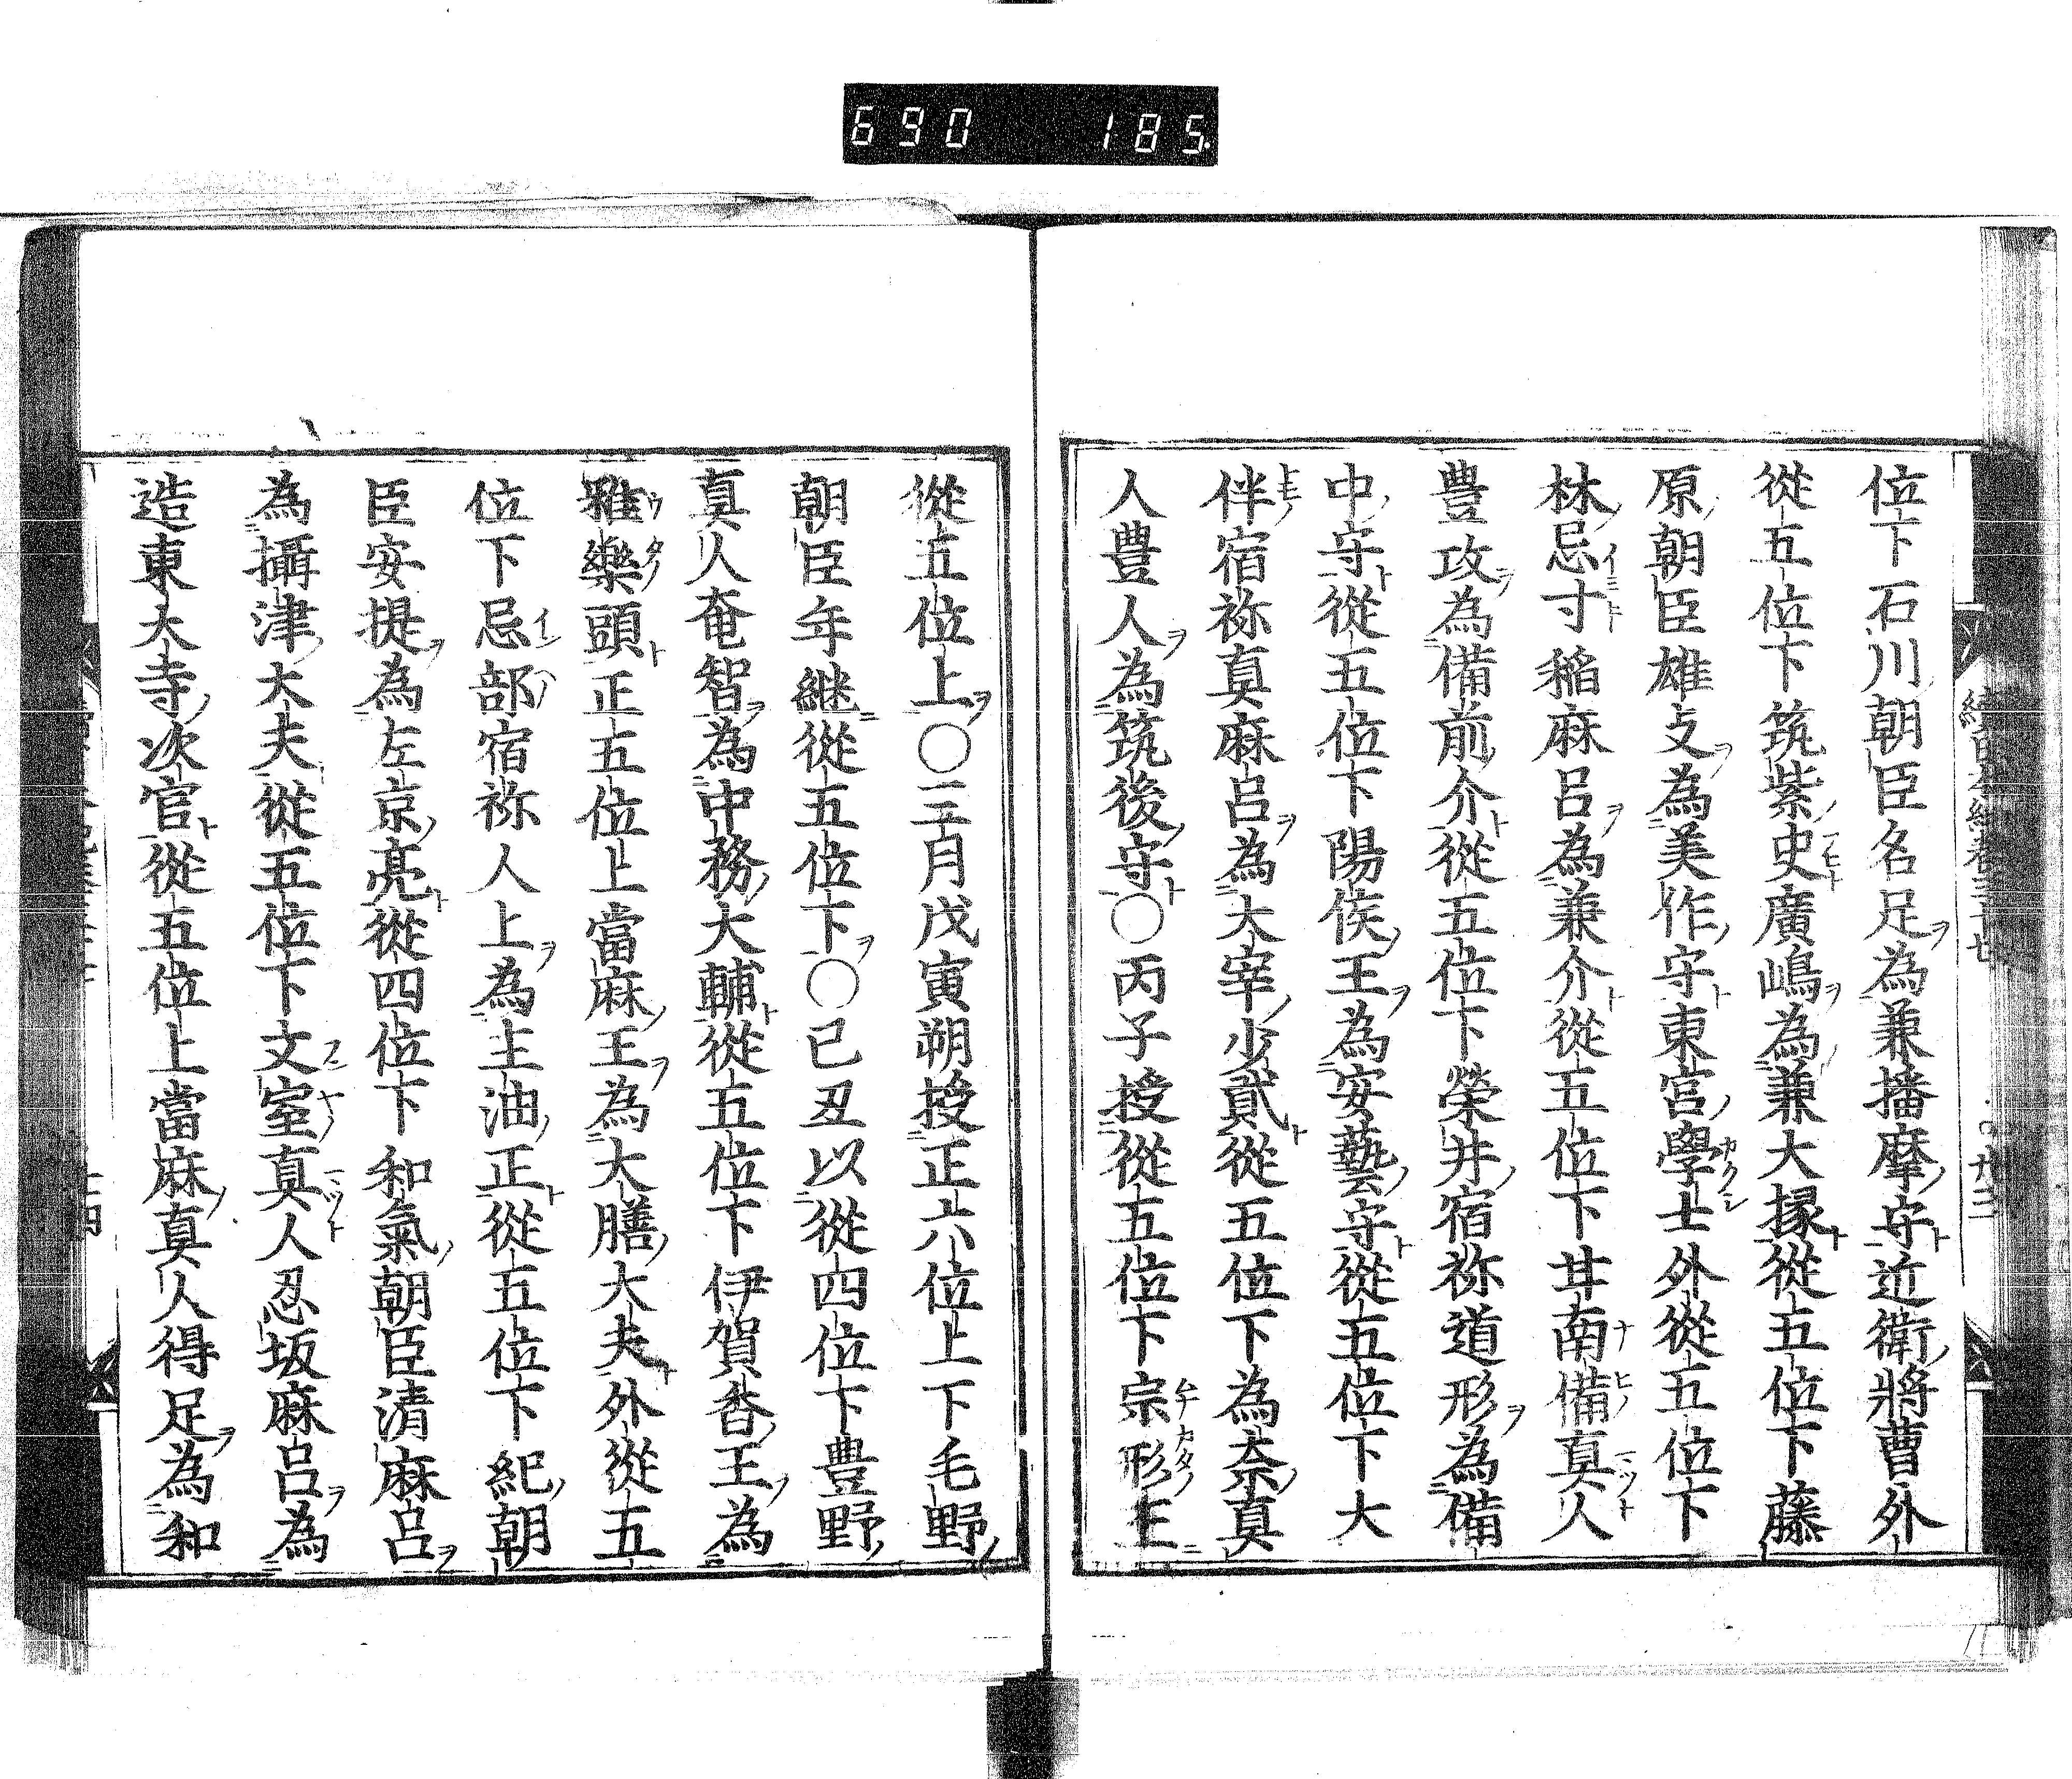 690 185
位下石川朝臣名足為兼播摩守近衛將曹外
從五位下筑紫史廣嶋為兼大掾從五位下藤
原朝臣雄友為美作守東宮學士外從五位下
林忌寸稲麻呂為兼介從五位下甘南備真人
豊次為備前介從五位下榮井宿祢道形為備
中守從五位下陽侯王為安藝守從五位下大
伴宿祢真麻呂為大宰少貳從五位下為奈真
人豊人為筑後守〇丙子授從五位下宗形王
從五位上〇三月戊寅朔授正六位上下毛野
朝臣年継從五位下〇己丑以從四位下豊野
真人奄智為中務大輔從五位下伊賀香王為
雅樂頭正五位上當麻王為大膳大夫外從五
位下忌部宿祢人上為主油正從五位下紀朝
臣安提為左京亮從四位下和氣朝臣清麻呂
為攝津大夫從五位下文室真人忍坂麻呂為
造東大寺次官從五位上當麻真人得足為和